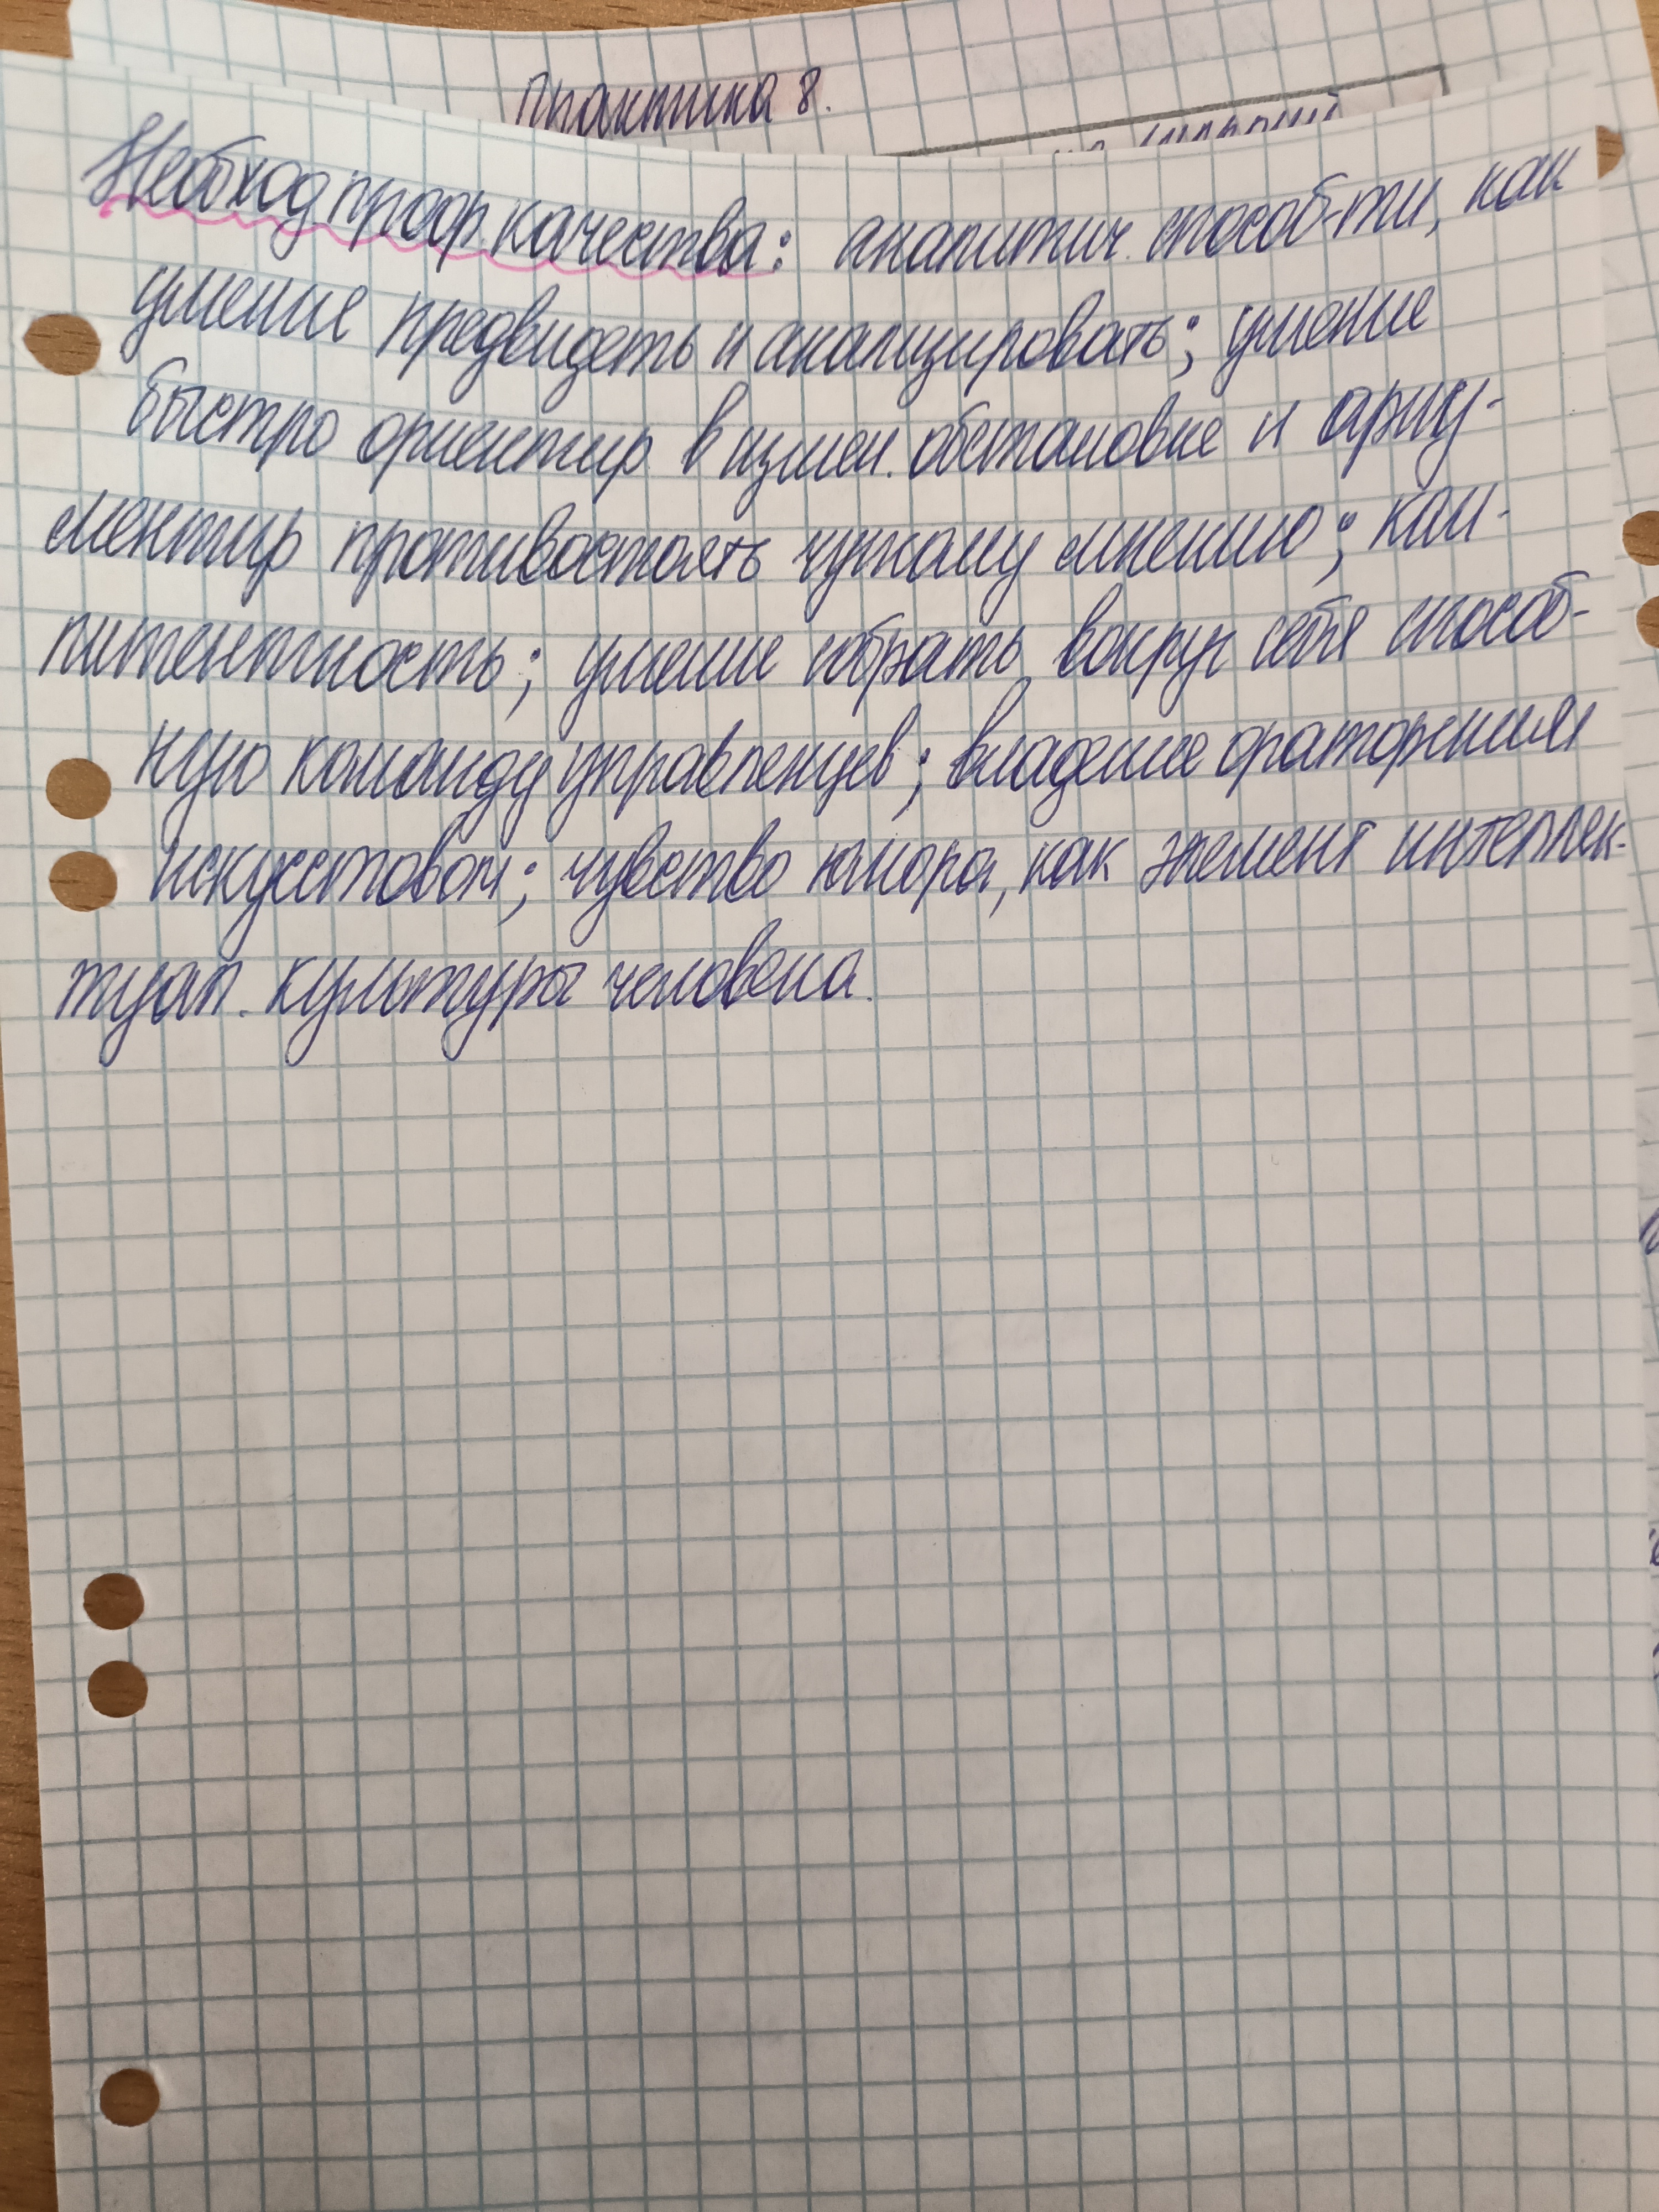 Практика 8.
Необход проф. качества: аналитич. способ-ти, как
умение предвидеть и анализировать; умение
быстро ориентир в измен. обстановке и аргу-
ментир противостоять чужому мнению; ком-
питентность; умение собрать вокруг себя способ-
ную команду управленцев; владение ораторским
искусстовом; чувство юмора, как элемент интеллек-
туал. культуры человека.